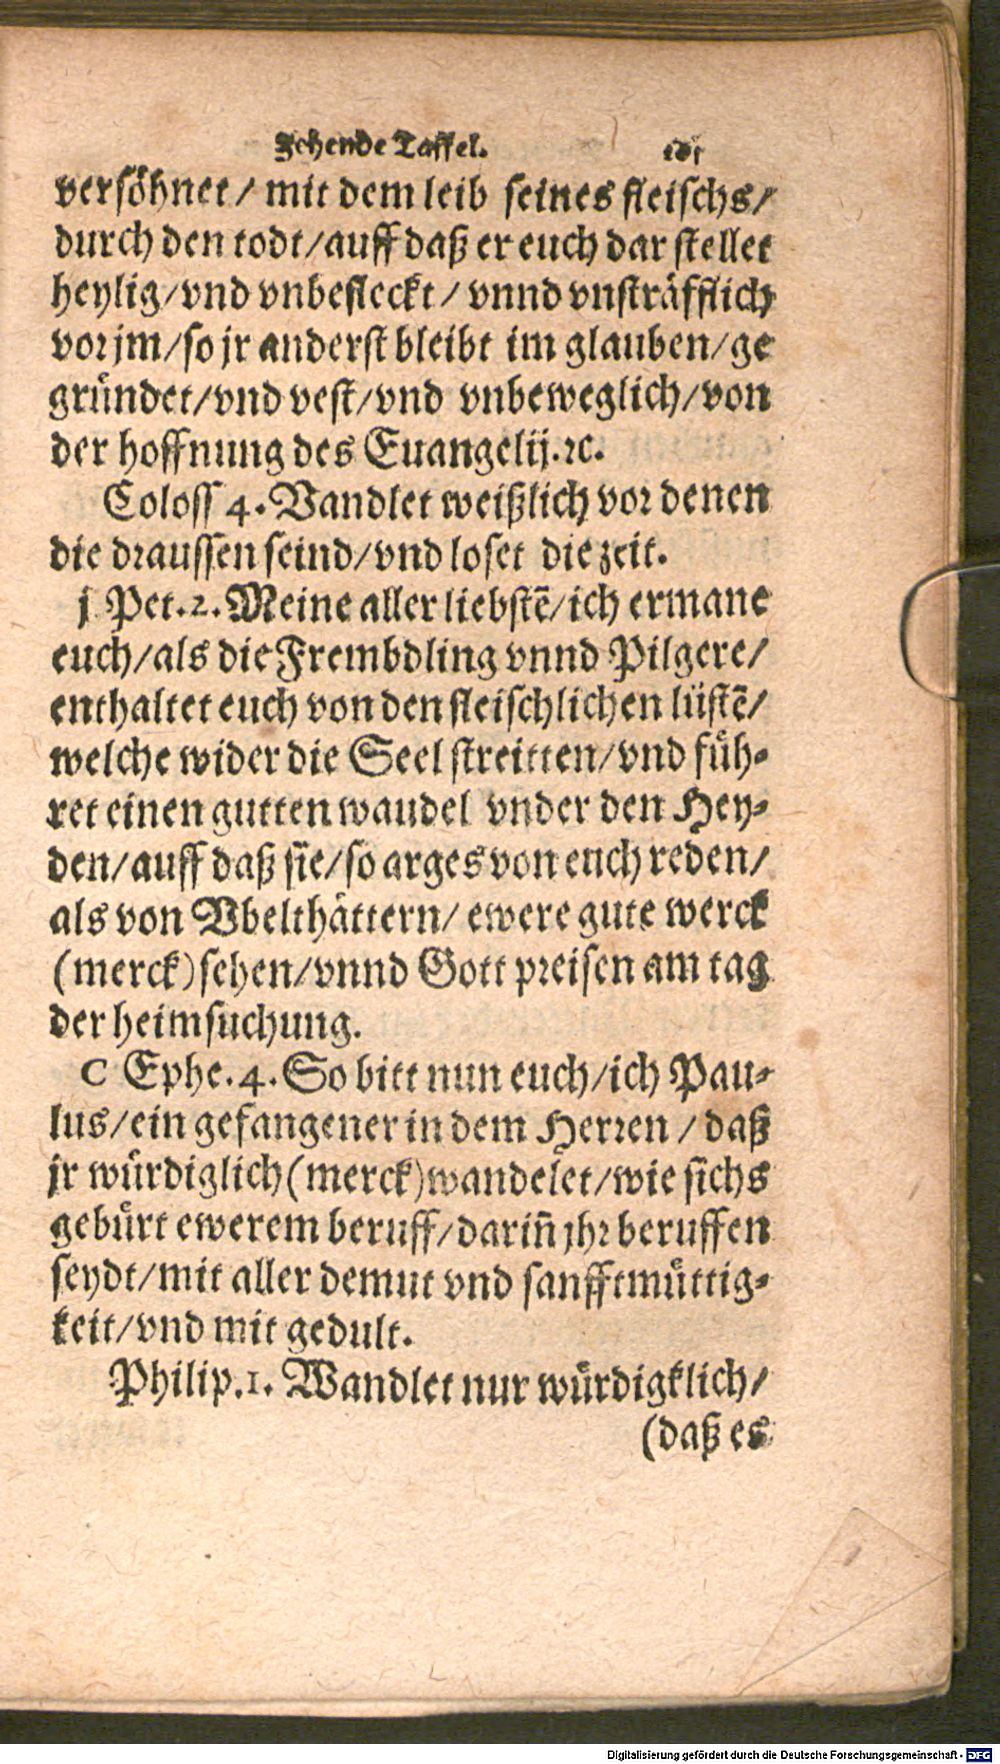 Zehende Taffel. 101
versöhnet / mit dem leib seines fleischs /
durch den todt / auff daß er euch dar stellet
heylig / vnd vnbefleckt / vnnd vnsträfflich
vor jm / so jr anderst bleibt im glauben / ge
gründet / vnd vest / vnd vnbeweglich / von
der hoffnung des Euangelij. ꝛc.
Coloss 4. Vandlet weißlich vor denen
die draussen seind / vnd loset die zeit.
j Pet. 2. Meine aller liebstē / ich ermane
euch / als die Frembdling vnnd Pilgere /
enthaltet euch von den fleischlichen lüstē /
welche wider die Seel streitten / vnd füh-
ret einen gutten waudel vnder den Hey-
den / auff daß sie / so arges von euch reden /
als von Vbelthättern / ewere gute werck
(merck) sehen / vnnd Gott preisen am tag
der heimsuchung.
C Ephe. 4. So bitt nun euch / ich Pau-
lus / ein gefangener in dem Herren / daß
jr würdiglich (merck) wandelet / wie sichs
gebürt ewerem beruff / dariñ jhr beruffen
seydt / mit aller demut vnd sanfftmüttig-
keit / vnd mit gedult.
Philip. 1. Wandlet nur würdigklich /
(daß es
Digitalisierung gefördert durch die Deutsche Forschungsgemeinschaft - DFG